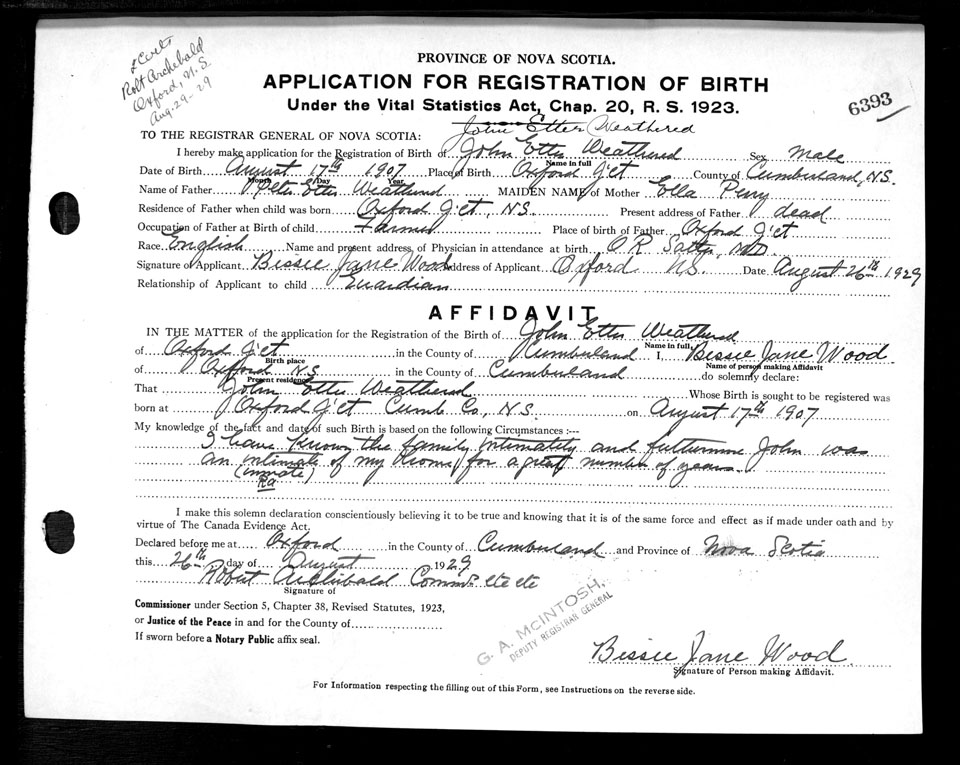 2 Certs
Robt Archibald
Oxford, N.S
Aug-29-29
PROVINCE OF NOVA SCOTIA.
APPLICATION FOR REGISTRATION OF BIRTH
Under the Vital Statistics Act, Chap. 20, R. S. 1923.
6393
John Etter Weathered
TO THE REGISTRAR GENERAL OF NOVA SCOTIA:
I hereby make application for the Registration of Birth of John Etter Weathered Sex Male
Name in full
Date of Birth August 17th 1907 Place of Birth Oxford J'ct County of Cumberland, N.S.
Month Day Year
Name of Father Peter Etter Weathered MAIDEN NAME of Mother Ella Perry
Residence of Father when child was born Oxford J'ct, N.S. Present address of Father dead
Occupation of Father at Birth of child Farmer Place of birth of Father Oxford J'ct
Race English Name and present address, of Physician in attendance at birth O R Salter, MD
Signature of Applicant Bissie Jane Wood Address of Applicant Oxford N.S. Date August 26th 1929
Relationship of Applicant to child Guardian
AFFIDAVIT
IN THE MATTER of the application for the Registration of the Birth of John Etter Weathered
Name in full
of Oxford J'ct in the County of Cumberland I, Bessie Jane Wood
Birth place Name of person making Affidavit
of Oxford N.S. in the County of Cumberland do solemnly declare:
Present residence
That John Etter Weathered Whose Birth is sought to be registered was
born at Oxford J'ct Cumb. Co., N.S. on August 17th 1907
My knowledge of the fact and date of such Birth is based on the following Circumstances :---
I have known the family intimately and futtermore John was
an intimate of my home for a great number of years.
(inmate)
Ra
I make this solemn declaration conscientiously believing it to be true and knowing that it is of the same force and effect as if made under oath and by
virtue of The Canada Evidence Act.
Declared before me at Oxford in the County of Cumberland and Province of Nova Scotia
this 26th day of August 1929
Robert Archibald Commr. etc etc
Signature of
Commissioner under Section 5, Chapter 38, Revised Statutes, 1923,
or Justice of the Peace in and for the County of
If sworn before a Notary Public affix seal.
G. A. McINTOSH,
DEPUTY REGISTRAR GENERAL
Bissie Jane Wood.
Signature of Person making Affidavit.
For Information respecting the filling out of this Form, see Instructions on the reverse side.